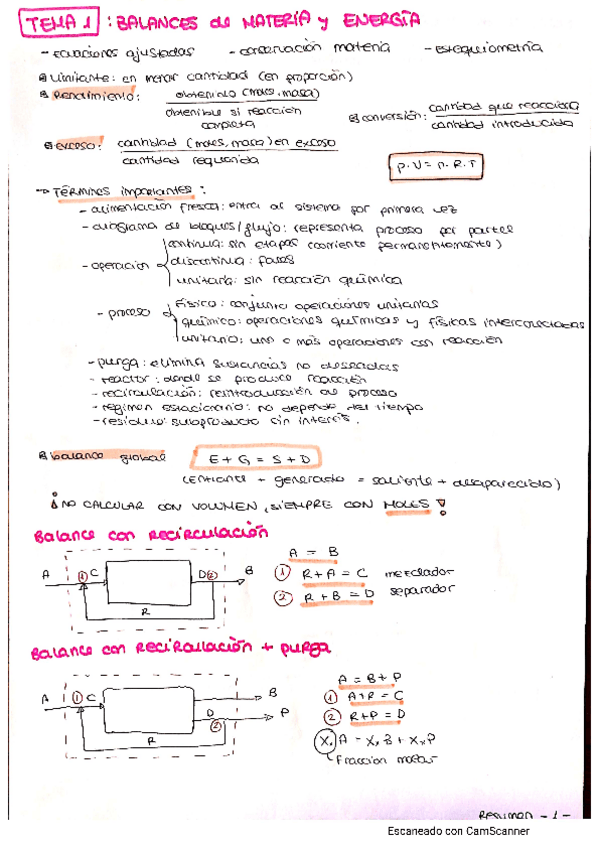 TEMA 1: BALANCES de MATERIA y ENERGÍA
- ecuaciones ajustadas - conservación materia - estequiometría
limitante: en menor cantidad (en proporción)
Rendimiento: obtenido (moles, masa)
obtenible si reacción
completa
conversión: cantidad que reacciona
cantidad introducida
exceso: cantidad (moles, masa) en exceso
cantidad requerida
P.V = n.R.T
→ Términos importantes:
- alimentación fresca: entra al sistema por primera vez
- diagrama de bloques/flujo: representa proceso por partes
- operación
continua: sin etapas (corriente permanentemente)
discontinua: fases
unitaria: sin reacción química
- proceso
físico: conjunto operaciones unitarias
químico: operaciones químicas y físicas interconectadas
unitario: uno o más operaciones con reacción
- purga: elimina sustancias no deseadas
- reactor: donde se produce reacción
- recirculación: reintroducción al proceso
- régimen estacionario: no depende del tiempo
- residuo: subproducto sin interés.
balance global E + G = S + D
(entrante + generado = saliente + desaparecido)
¡NO CALCULAR CON VOLUMEN, SIEMPRE CON MOLES!
Balance con RECIRCULACIÓN
A 1 C D 2 B
R
A = B
1 R + A = C mezclador
2 R + B = D separador
Balance con RECIRCULACIÓN + purga
A 1 C B
D P
2
R
A = B + P
1 A + R = C
2 R + P = D
X. A = X. B + X. P
Fracción molar
Resumen - 1 -
Escaneado con CamScanner